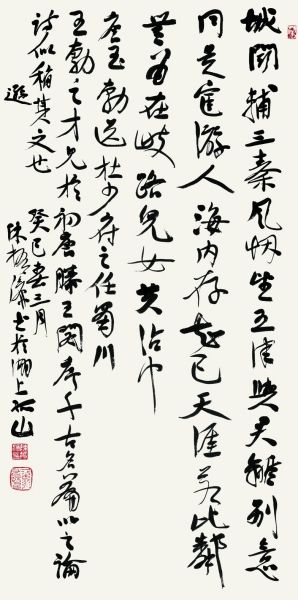 城闕輔三秦風烟望五津與君離別意
同是宦游人海内存知己天涯若比鄰
無為在歧路兒女共沾巾
唐王勃送杜少府之任蜀川
王勃之才見於初唐滕王閣序千古名篇以之論
詩似稍其文也
遜
癸巳春三月
朱書於湖上孤山